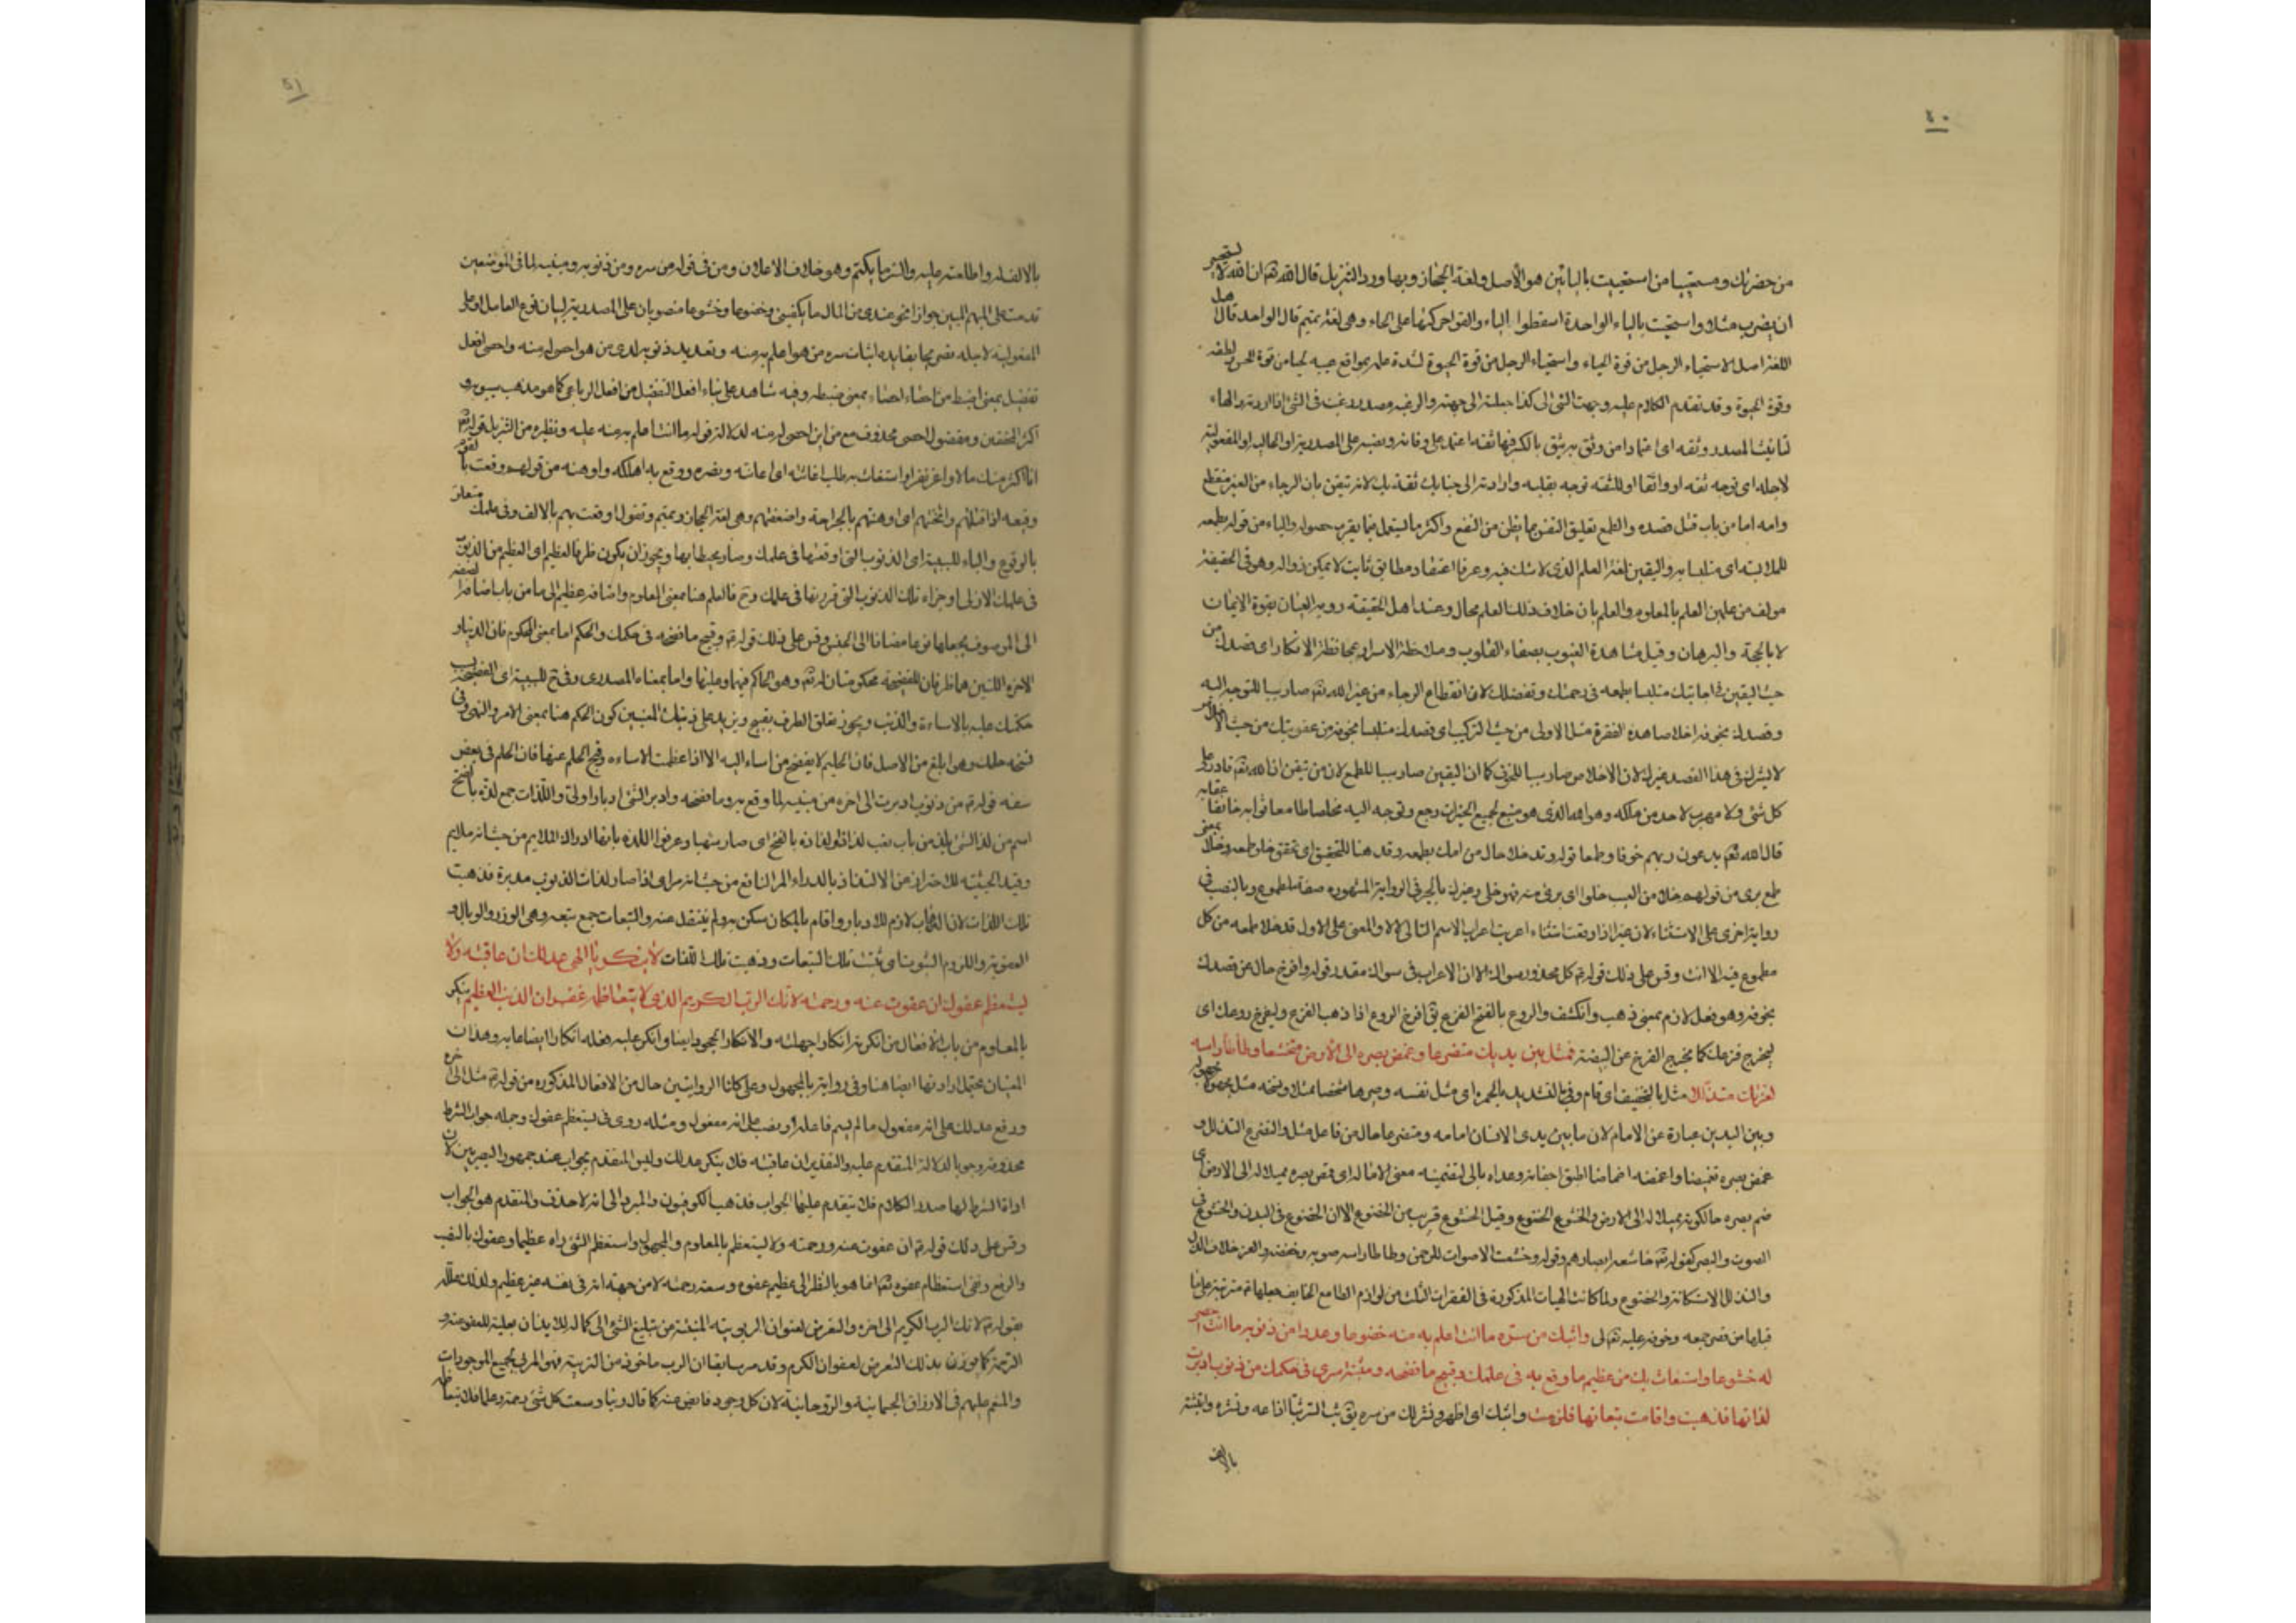 ٤٠
من حضرتك ومستحييا من استحييت بالياتين هو الأصل ولغة الحجاز وبها ورد التنزيل قال الله تم ان الله لا يستحيى
ان يضرب مثلا واستحيت بالياء الواحدة اسقطوا الياء والقوا حركتها على الحاء وهى لغة تميم قال الواحد قال اهل
اللغة اصل الاستحياء الرجل من قوة الحياء واستحياء الرجل من قوة الحيوة لشدة علمه بمواقع عيبه لحيا من قوة الحس ولطفه
وقوة الحيوة وقد تقدم الكلام عليه وجهت الشئ الى كذا جعلته الى جهته والرغبه مصدر رغبت فى الشئ اذا اردته والهاء
لتانيث المصدر وثقه اى اعتمادا من وثق به يثق بالكسر فيهما ثقه اعتمد على وفائه ونصبه على المصدرية او الحاليه او المفعولية
لاجله اى توجه ثقه او واثقا او للثقه توجه بقلبه وارادته الى جنابك ثقة بك لانه تيقن بان الرجاء من الغير منقطع
وامه اما من باب قتل قصده والطمع تعليق النفس بما يظن من النفع واكثر ما يستعمل فيما يقرب حصوله والباء من قوله بطمعه
للملابسه اى متلبسا به واليقين لغة العلم الذى لا شك فيه وعرفا اعتقاد مطابق ثابت لا يمكن زواله وهو فى الحقيقة
مولف من علمين العلم بالمعلوم والعلم بان خلاف ذلك العلم محال وعند اهل الحقيقه روية العيان بقوة الايمان
لا بالحجة والبرهان وقيل مشاهدة الغيوب بصفاء القلوب وملاحظة الاسرار بمحافظة الافكار اى قصدك من
حيث اليقين متلبسا بطمعه فى رحمتك وتفضلك لان انقطاع الرجاء من غير الله تم صار سببا للتوجه اليه
وقصدك بخوفه اخلاصا هذه الفقرة مثل الاولى من حيث التركيب اى قصدك متلبسا بخوفه من عقوبتك من حيث الاخلاص
لا يشرك فى هذا القصد غيرك لان الاخلاص صار سببا للخوف كما ان اليقين صار سببا للطمع لان من تيقن ان الله تم قادر على
كل شئ ولا مهرب لاحد من ملكه وهو الله الذى هو منبع لجميع الخيرات رجع وتوجه اليه مخلصا طامعا ثوابه خائفا عقابه
قال الله تم يدعون ربهم خوفا وطمعا قوله وقد خلا حال من امك بطمعه وقد هنا للتحقيق اى تحقق خلو طمعه وخلا بمعنى
طمع برى من قولهم خلا من العيب خلوا اى برئ منه فهو خلى وغيرك بالجر فى الرواية المشهورة صفة لمطموع وبالنصب فى
رواية اخرى على الاستثناء لان غير اذا وقعت استثناء اعربت اعراب الاسم التالى الا والمعنى على الاول قد خلا طمعه من كل
مطموع فيه الا انت وقس على ذلك قوله كل محذور سواك الا ان الاعراب فى سواك مقدر قوله وافرخ حال من قصدك
بخوفه وهو فعل لازم بمعنى ذهب وانكشف والروع بالفتح الفزع يق افرخ الروع اذا ذهب الفزع وليفرخ روعك اى
ليخرج فزعك كما يخرج الفرخ عن البيضة فمثل بين يديك متضرعا وغمض بصره الى الارض متخشعا وطأطأ راسه
لعزتك متذللا مثل بالتخفيف اى قام
وبين اليدين عبارة عن الامام لان ما بين يدى الانسان امامه ومتضرعا حال من فاعل مثل والتضرع التذلل و
غمض بصره تغميضا واغمضه اغماضا اطبق اجفانه وعداه بالى لتضمينه معنى الامالة اى غمض بصره مميلا له الى الارض
ضم بصره حالكونه مميلا له الى الارض والخشوع الخضوع وقيل الخشوع قريب من الخضوع الا ان الخضوع فى البدن والخشوع فى
الصوت والبصر كقوله تم خاشعة ابصارهم وقوله وخشعت الاصوات للرحمن وطاطا راسه صوبه وخفضه والعز خلاف الذل
والتذلل الاستكانة والخضوع ولما كانت الهيات المذكورة فى الفقرات الثلث من لوازم الطامع الخايف جعلها مترتبة على ما
قبلها وابثك من سره ما انت اعلم به منه خضوعا وعدد من ذنوبه ما انت احصى
له خشوعا واستغاث بك من عظيم ما وقع به فى علمك وقبيح ما فضحه فى حكمك من ذنوب ادبرت
لذاتها فذهبت واقامت تبعاتها فلزمت وابثك اى اظهر ونشر لك من سره يق بث السر بثا اذا عه ونشره وابثثته
بالالف
٤١
بالالف له واطلعته عليه والسر ما يكتم وهو خلاف الاعلان ومن فى قوله من سره ومن ذنوبه مبينه لما فى الموضعين
قدمت على المبهم المبين جوازا نحو عندى من المال ما يكفينى وخضوعا وخشوعا منصوبان على المصدرية لبيان نوع العامل او على
المفعولية لاجله
تفضيل بمعنى اضبط من احصاه احصاء بمعنى ضبطه وفيه شاهد على بناء افعل التفضيل من افعل الرباعى كما هو مذهب سيبويه و
اكثر المحققين ومفضول احصى محذوف مع من اى احصى له منه لدلالة قوله ما انت اعلم به منه عليه ونظيره من التنزيل قوله تم
انا اكثر منك مالا واعز نفرا واستغاث به طلب اغاثته اى اعانته ونصره ووقع به اهلكه واوهنه من قولهم وقعت بالقوم
وقيعه اذا قتلتهم واثخنتهم اى اوهنتهم بالجراحة واضعفتهم وهى لغة الحجاز وتميم وتقول اوقعت بهم بالالف وفى علمك متعلق
بالوقوع والباء للسببية اى الذنوب التى اوقعتها فى علمك وصار محيطا بها ويجوز ان يكون ظرفا لعظيم اى العظيم من الذنوب
فى علمك الازلى او جزاء تلك الذنوب التى قررتها فى علمك وح فالعلم هنا بمعنى المعلوم واضافة عظيم الى ما من باب اضافة الصفة
الى الموصوف بجعلها نوعا مضافا الى الجنس وقس على ذلك قوله وقبيح ما فضحه فى حكمك والحكم اما بمعنى المحكوم فان الدنيا و
الاخرة اللتين هما ظرفان للفضيحة محكومتان له تم وهو الحاكم فيهما وعليهما واما بمعناه المصدرى وفى ح للسببية اى الفضيحة بسبب
حكمك عليه بالاساءة والذنب ويجوز تعلق الظرف بقبيح ويزيد على ذينك المعنيين كون الحكم هنا بمعنى الامر والنهى وفى
فضحه حلمك وهو ابلغ من الاصل فان الحليم لا يفضح من اساء اليه الا اذا عظمت الاساءه وقبح الحلم عنها فان الحلم فى بعض
سفه قوله من ذنوب ادبرت الى اخره من مبينه لما وقع به وما فضحه وادبر الشئ ادبارا ولى واللذات جمع لذة بالفتح
اسم من لذ الشئ يلذ من باب تعب لذاذا ولذاذة بالفتح اى صار شهيا وعرفوا اللذة بانها ادراك الملايم من حيث انه ملايم
وقيد الحيثية للاحتراز عن الالتذاذ بالدواء المر النافع من حيث انه مر اى اذا صار لذات الذنوب مدبرة فذهبت
تلك اللذات لان الذهاب لازم للادبار واقام بالمكان سكن به ولم ينتقل عنه والتبعات جمع تبعه وهى الوزر والوبال و
العقوبة واللزوم الثبوت اى ثبتت تلك التبعات وذهبت تلك اللذات لا ينكر يا الهى عدلك ان عاقبته ولا
يستعظم عفوك ان عفوت عنه ورحمته لانك الرب الكريم الذى لا يتعاظمه غفران الذنب العظيم ينكر
بالمعلوم من باب الافعال من انكرته انكارا جهلته والانكار الجحود ايضا وانكر عليه فعله انكارا ايضا عابه وهذان
المعنيان يحتمل ارادتهما ايضا هنا وفى رواية بالمجهول وعلى كلتا الروايتين حال من الافعال المذكوره من قوله مثل الى اخره
ورفع عدلك على انه مفعول ما لم يسم فاعله او نصب على انه مفعول ومثله روى فى يستعظم عفوك وجمله جواب الشرط
محذوفه وجوبا لدلالة المتقدم عليه والتقدير ان عاقبته فلا ينكر عدلك وليس المتقدم بجواب عند جمهور البصريين لان
اداة الشرط لها صدر الكلام فلا يتقدم عليها الجواب فذهب الكوفيون والمبرد الى انه لا حذف والمتقدم هو الجواب
وقس على ذلك قوله ان عفوت عنه ورحمته ولا يستعظم بالمعلوم والمجهول واستعظم الشئ راه عظيما وعفوك بالنصب
والرفع ونفى استعظام عفوه تم انما هو بالنظر الى عظيم عفوه وسعة رحمته لا من جهة انه فى نفسه غير عظيم ولذلك علله
بقوله لانك الرب الكريم الى اخره والتعرض لعنوان الربوبيه المنبئة عن تبليغ الشئ الى كماله للايذان بعلية للعفو عنه و
الرحمة كما يوذن بذلك التعرض لعنوان الكرم وقد مر سابقا ان الرب ماخوذ من التربية فهو المربى لجميع الموجودات
والمنعم عليهم فى الارزاق الجسمانيه والروحانية لان كل وجود فايض عنه كما قال ربنا وسعت كل شئ رحمة وعلما فلا يتعاظمه